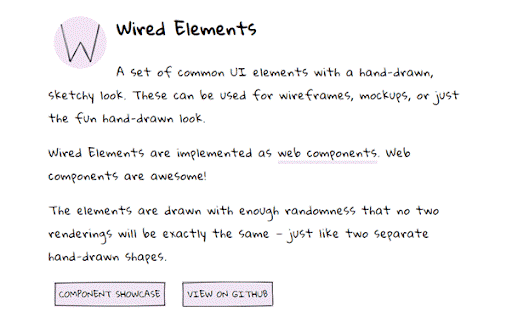 W
Wired Elements
A set of common UI elements with a hand-drawn,
sketchy look. These can be used for wireframes, mockups, or just
the fun hand-drawn look.
Wired Elements are implemented as web components. Web
components are awesome!
The elements are drawn with enough randomness that no two
renderings will be exactly the same - just like two separate
hand-drawn shapes.
COMPONENT SHOWCASE
VIEW ON GITHUB